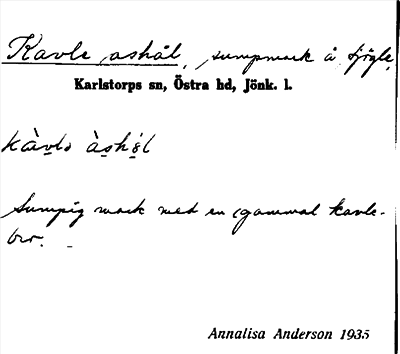 Kavle ashål, sumpmark å Fjögle,
Karlstorps sn, Östra hd, Jönk. l.
kàvlə àshål
Sumpig mark med en gammal kavle-
bro.
Annalisa Anderson 1935